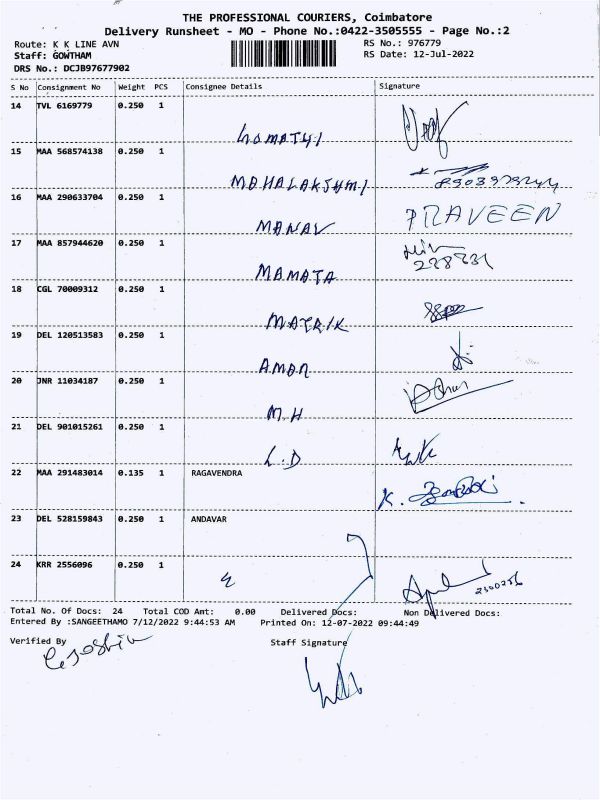 THE PROFESSIONAL COURIERS, Coimbatore
Delivery Runsheet - MO - Phone No.:0422-3505555 - Page No.:2
Route: K K LINE AVN RS No.: 976779
Staff: GOWTHAM RS Date: 12-Jul-2022
DRS No.: DCJB97677902
S No Consignment No Weight PCS Consignee Details Signature
14 TVL 6169779 0.250 1
GOMATHI
15 MAA 568574138 0.250 1
MAHALAKSHMI
16 MAA 290633704 0.250 1 PRAVEEN
MANAV
17 MAA 857944620 0.250 1
MAMATA
18 CGL 70009312 0.250 1
MATRIK
19 DEL 120513583 0.250 1
AMAN
20 JNR 11034187 0.250 1
M.H
21 DEL 901015261 0.250 1
L.D
22 MAA 291483014 0.135 1 RAGAVENDRA
K.
23 DEL 528159843 0.250 1 ANDAVAR
24 KRR 2556096 0.250 1
Total No. Of Docs: 24 Total COD Amt: 0.00 Delivered Docs: Non Delivered Docs:
Entered By :SANGEETHAMO 7/12/2022 9:44:53 AM Printed On: 12-07-2022 09:44:49
Verified By Staff Signature